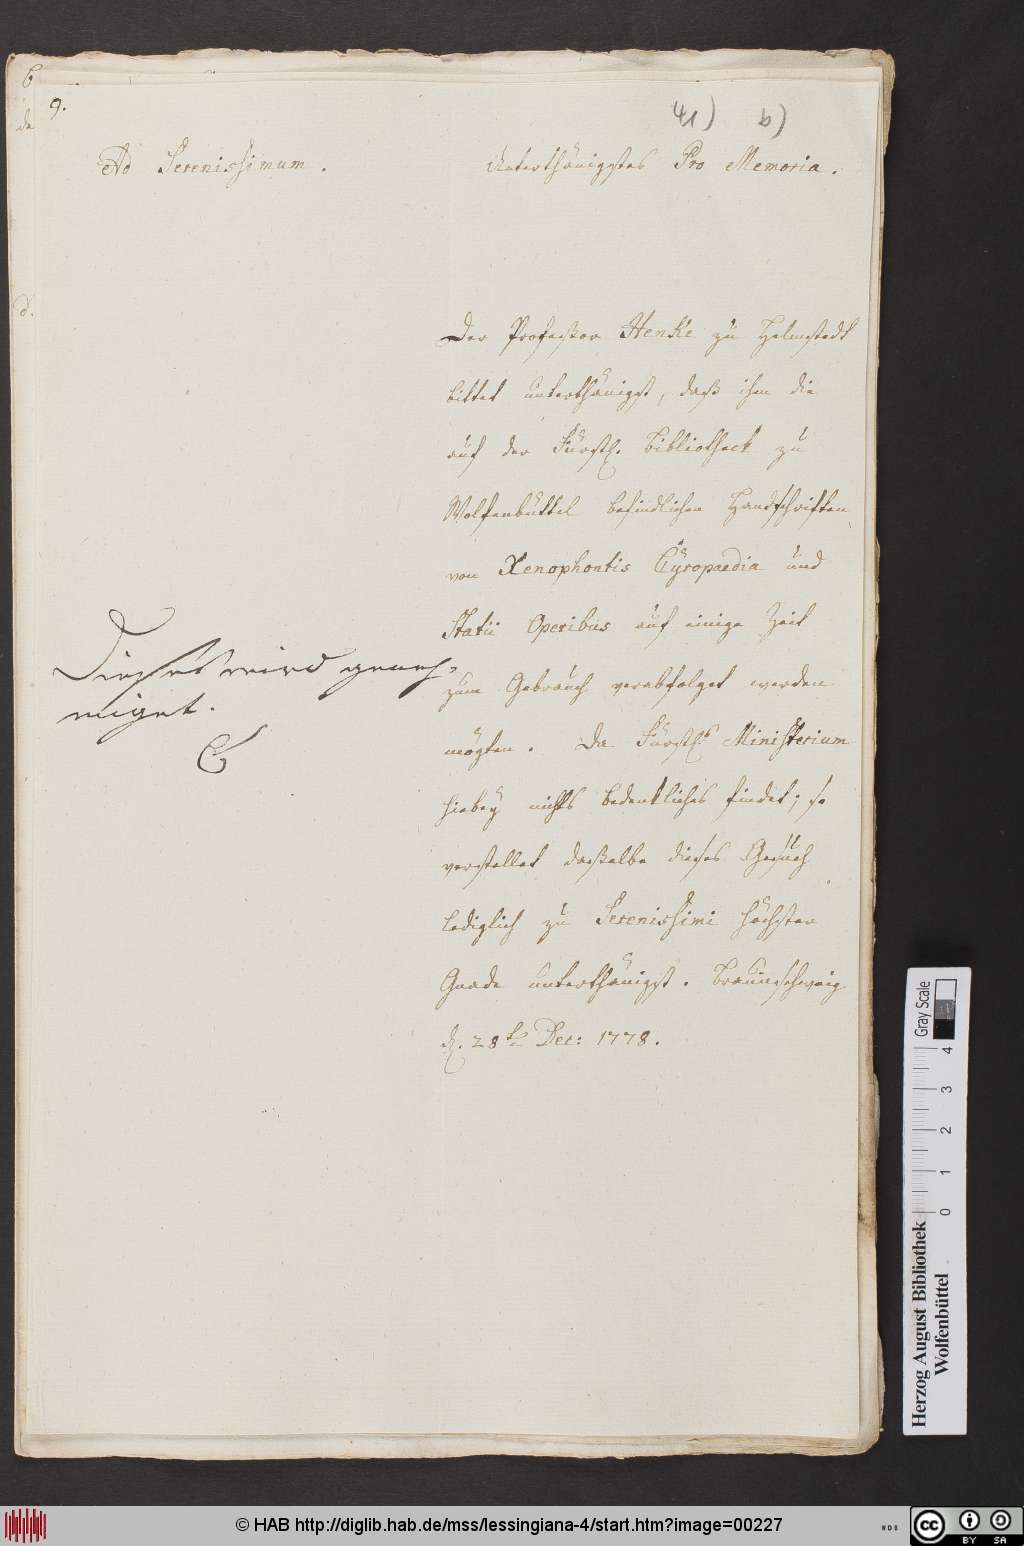 9.
41) b)
Ad Serenissimum.
Unterthänigstes Pro Memoria.
Der Profeßor Henke zu Helmstedt
bittet unterthänigst, daß ihm die
auf der Fürstl. Bibliotheck zu
Wolfenbüttel befindlichen Handschriften
von Xenophontis Cyropaedia und
Statii Operibus auf einige Zeit
zum Gebrauch verabfolget werden
mögten. Da Fürstl. Ministerium
hiebey nichts bedenkliches findet; so
verstellet daßelbe dieses Gesuch
lediglich zu Serenissimi höchster
Gnade unterthänigst. Braunschweig
d. 28t Dec: 1778.
Dieses wird geneh-
miget.
C
Gray Scale
0 1 2 3 4
Herzog August Bibliothek
Wolfenbüttel
© HAB http://diglib.hab.de/mss/lessingiana-4/start.htm?image=00227
WDB
cc BY SA